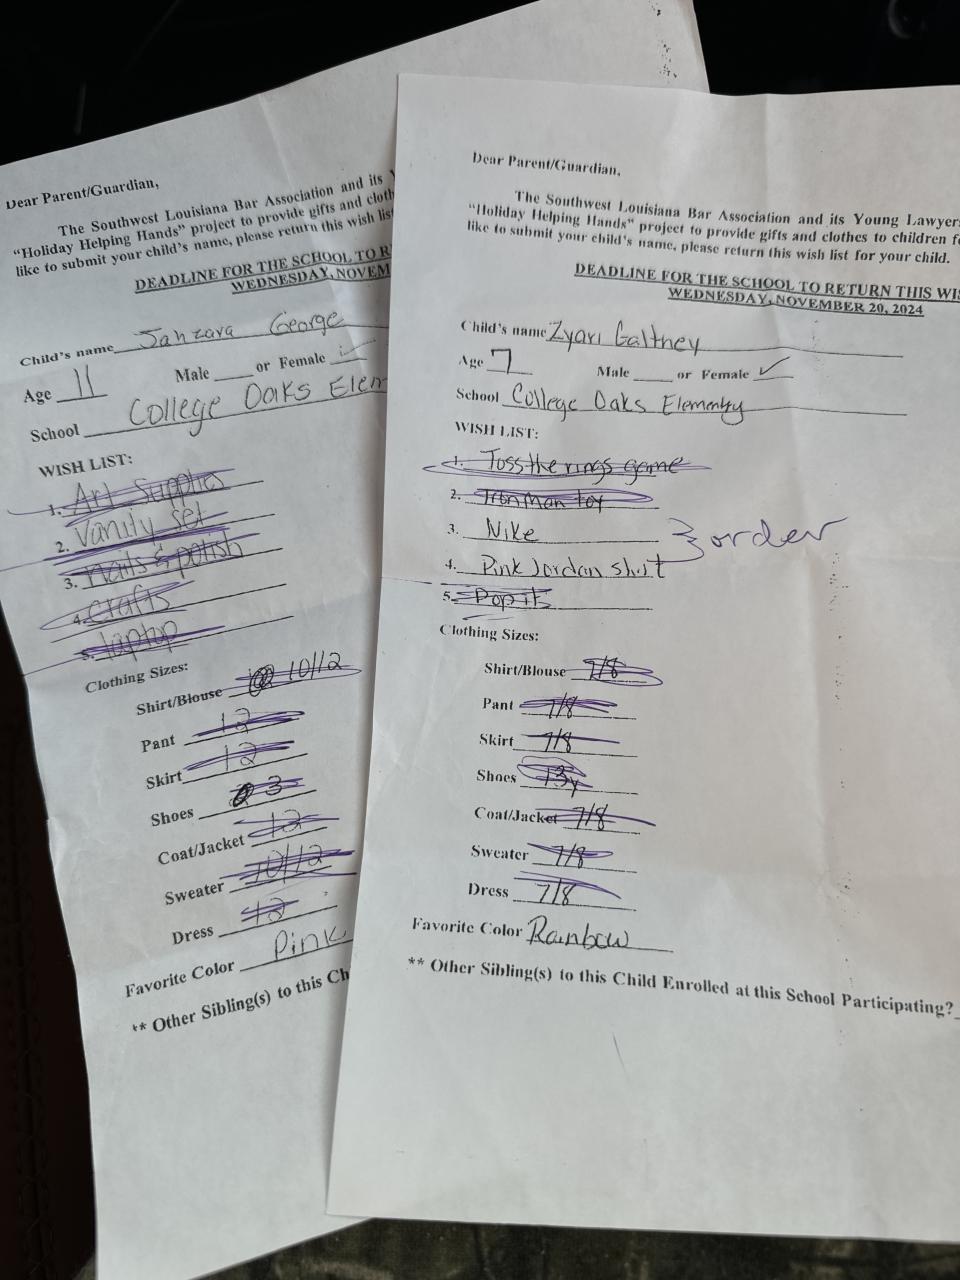 Dear Parent/Guardian,
The Southwest Louisiana Bar Association and its
"Holiday Helping Hands" project to provide gifts and cloth
like to submit your child's name, please return this wish list
DEADLINE FOR THE SCHOOL TO R
WEDNESDAY, NOVEM
Child's name Jahzara George
Age 11 Male ____ or Female ✓
School College Oaks Elem
WISH LIST:
1. Art Supplies
2. Vanity set
3. nails & polish
4. crafts
5. laptop
Clothing Sizes:
Shirt/Blouse 10/12
Pant 12
Skirt 12
Shoes 3
Coat/Jacket 12
Sweater 10/12
Dress 12
Favorite Color Pink
** Other Sibling(s) to this Ch
Dear Parent/Guardian,
The Southwest Louisiana Bar Association and its Young Lawyer
"Holiday Helping Hands" project to provide gifts and clothes to children f
like to submit your child's name, please return this wish list for your child.
DEADLINE FOR THE SCHOOL TO RETURN THIS WIS
WEDNESDAY, NOVEMBER 20, 2024
Child's name Zyari Galtney
Age 7 Male ____ or Female ✓
School College Oaks Elementry
WISH LIST:
1. Toss the rings game
2. Iron man toy
3. Nike
order
4. Pink Jordan shirt
5. Pop it
Clothing Sizes:
Shirt/Blouse 7/8
Pant 7/8
Skirt 7/8
Shoes 13y
Coat/Jacket 7/8
Sweater 7/8
Dress 7/8
Favorite Color Rainbow
** Other Sibling(s) to this Child Enrolled at this School Participating?